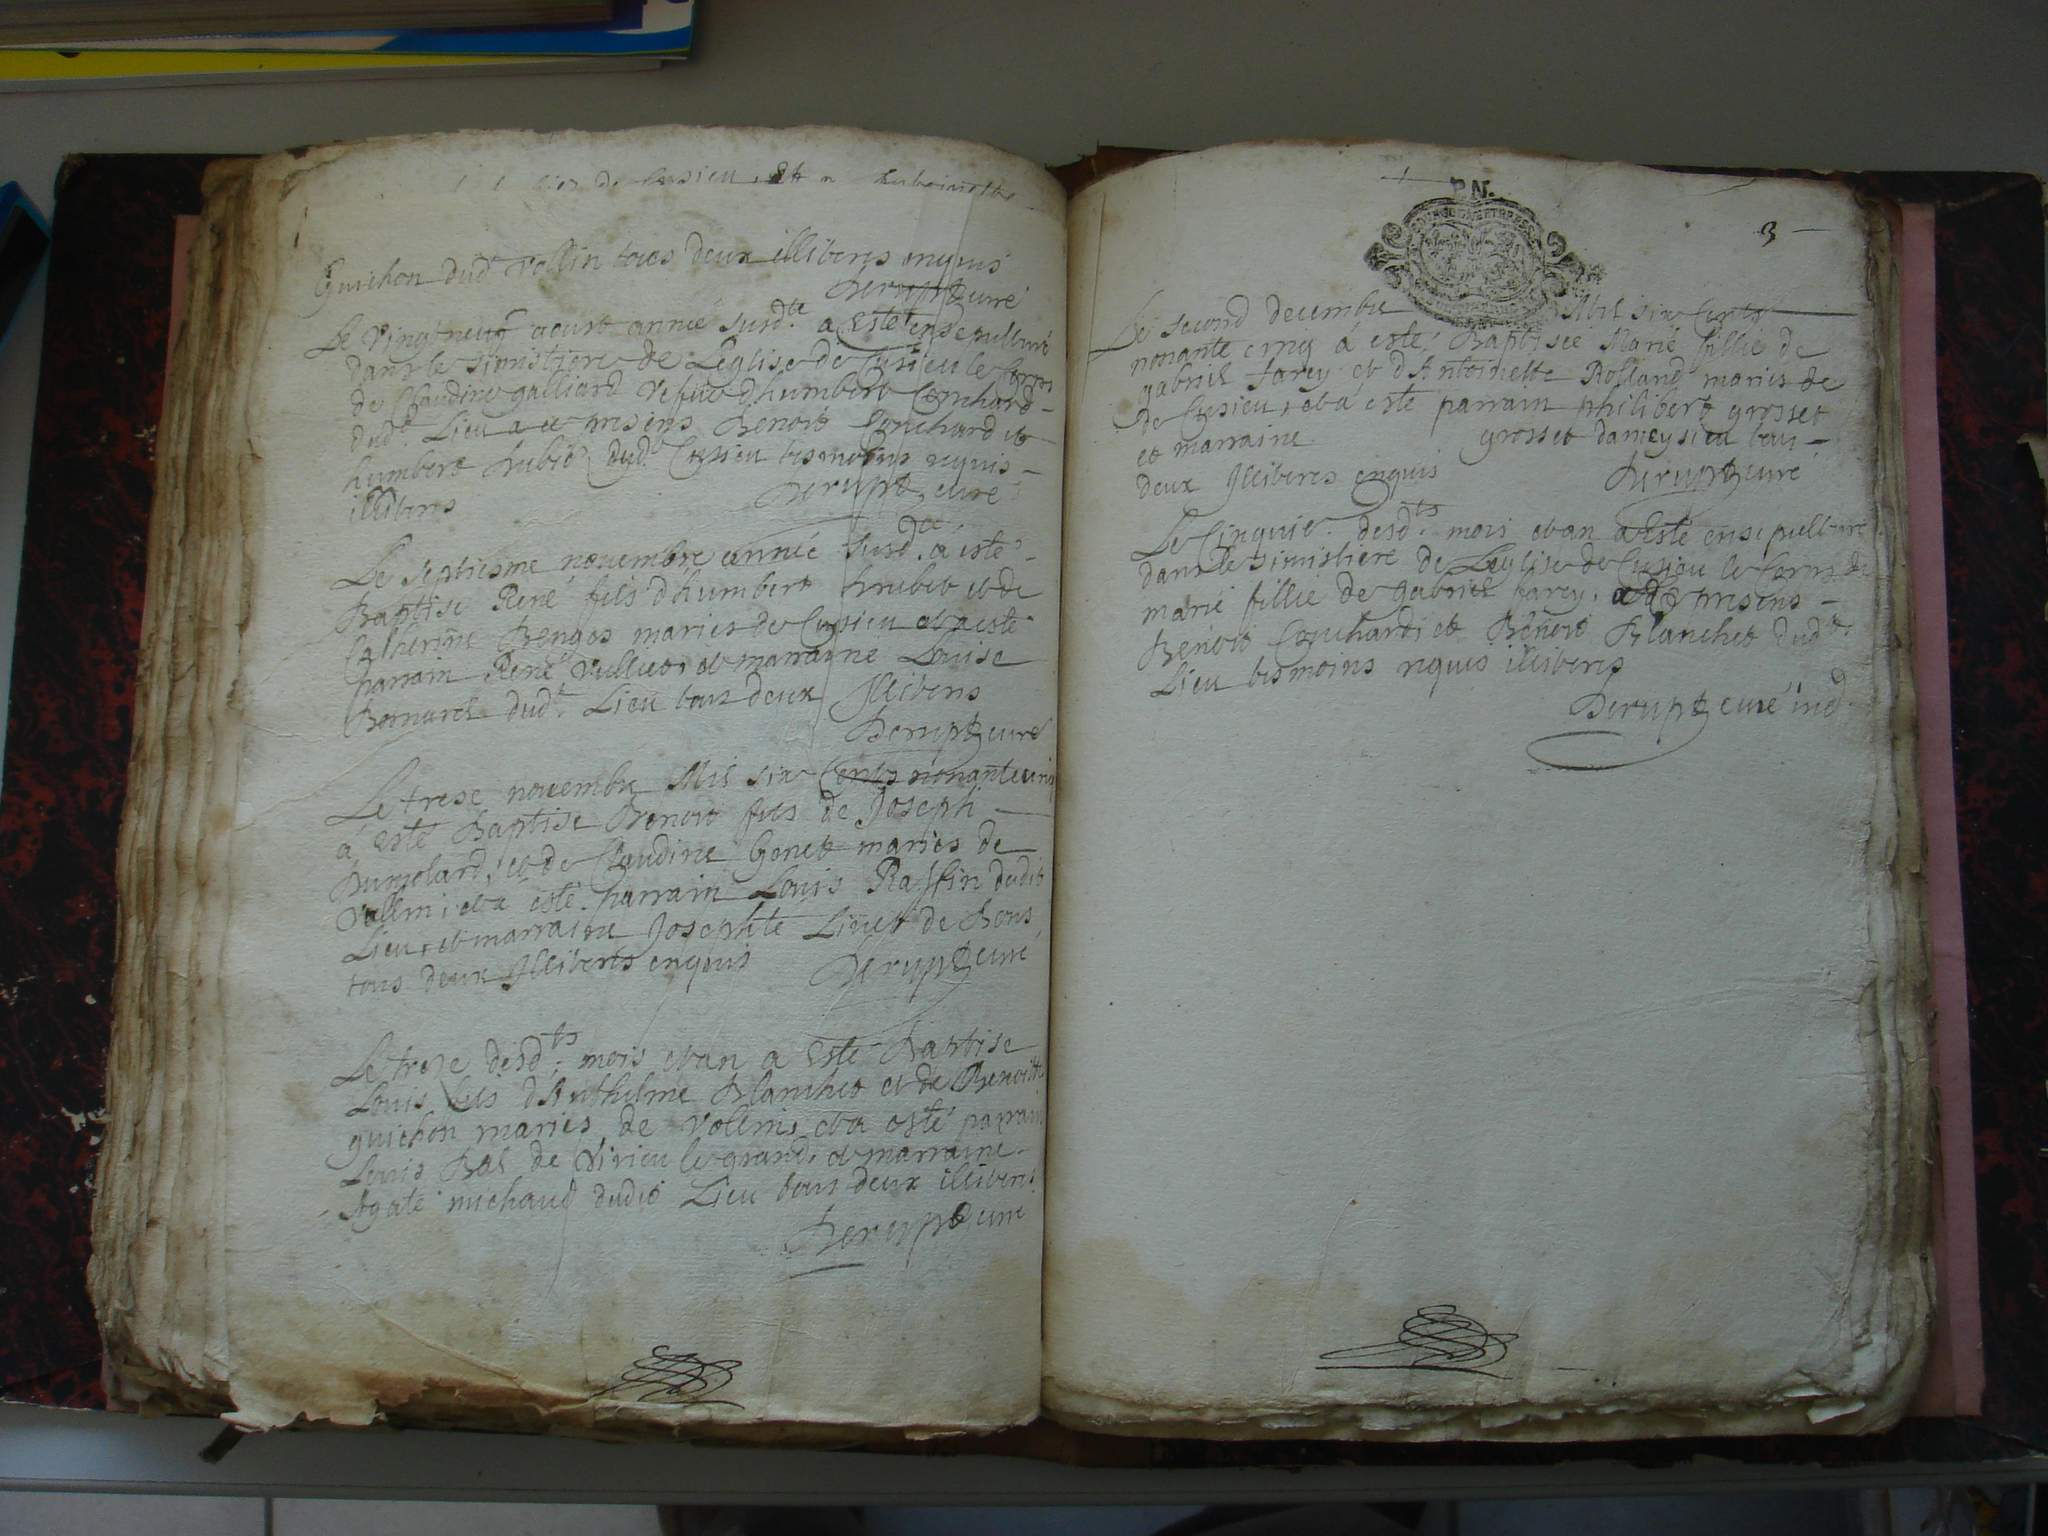 de Cusieu
Guichon dud.t Vollin tous deux illiteres enquis
Derupt curé
Le Vingt neuf aoust année susd.te a Esté ensepulturé
dans le simistiere de Leglise de Cusieu le Corps
de Claudine galliard vefve d'humbert Conchard
dud.t Lieu a ce presens Benoit Conchard et
humbert hubit dud.t Cusieu tesmoins requis
illiteres
Derupt curé
Le septiesme novembre année susd.te a esté
Baptisé René fils d'humbert et de
Catherine Benges mariés de Cusieu et a esté
parrain René Vulliet, et marraine Louise
dud.t Lieu tous deux Illiteres
Derupt curé
Le trese novembre Mil six Cents nonante cinq
à Esté Baptisé Benoit fils de Joseph
et de Claudine Genet mariés de
Vollin, et a esté parrain Louis Raffin dudit
Lieu, et marraine Josephte Livet de Rons
tous deux Illiteres enquis
Derupt curé
Le treze desd.ts mois et an a Esté Baptisé
Louis fils d'Anthelme Blanchet et de Benoitte
guichon mariés de Vollin, et a esté parrain
Louis Bal de Virieu le grand, et marraine
Agate michaud dudit Lieu tous deux illiteres
Derupt curé
P.N.
3
Le second decembre Mil six Cents
nonante cinq à esté Baptisée Marie fillie de
gabriel farcy et d'Antoinette Rolland mariés de
de Cusieu, et a esté parrain philibert grosset
et marraine grosset dameysieu tous
deux Illiteres enquis
Derupt curé
Le Cinquie. desd.ts mois et an a Esté ensepulturé
dans le simistiere de Leglise de Cusieu le Corps de
marie fillie de gabriel farcy, a ce presens
Benoit Conchard et Benoit Blanchet dud.t
Lieu tesmoins requis illiteres
Derupt curé